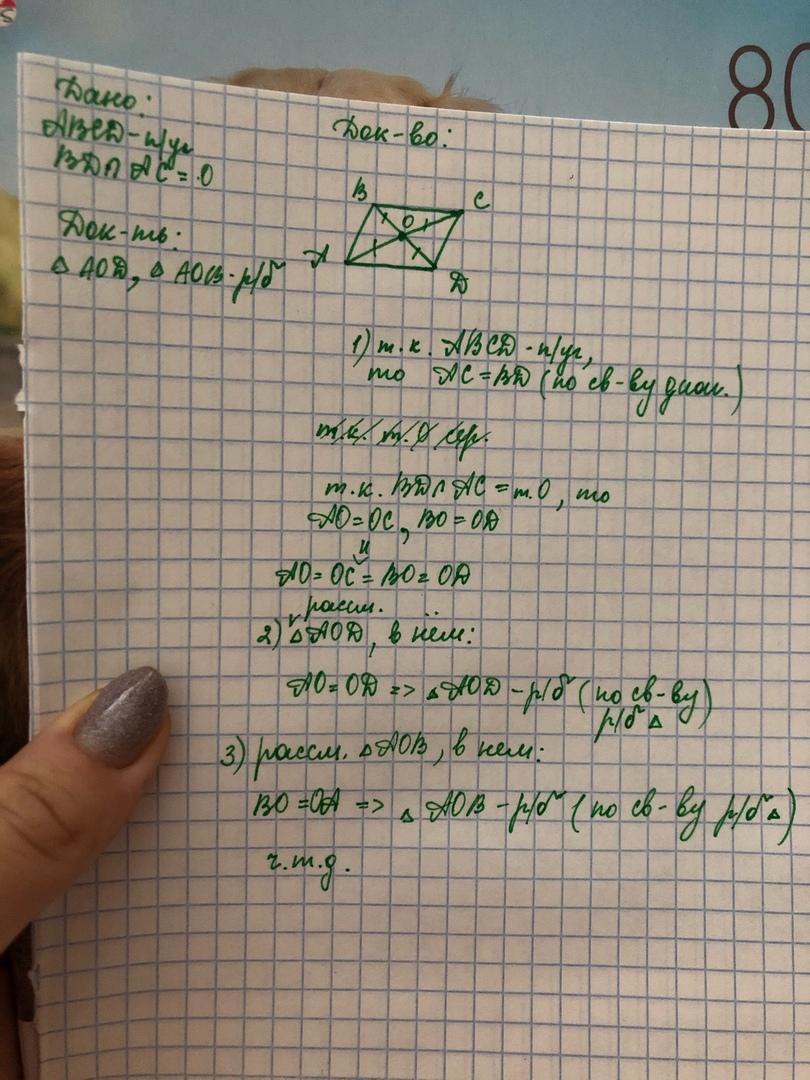 Дано:
ABCD - п/уг
BD∩AC = O
Док-ть:
△ AOD, △ AOB - р/б
Док-во:
B
C
O
A
D
1) т.к. ABCD - п/уг,
то AC = BD (по св-ву диаг.)
т.к. т.O сер.
т.к. BD∩AC = т.O, то
AO = OC, BO = OD
и
AO = OC = BO = OD
рассм.
2) △AOD, в нём:
AO = OD => △AOD - р/б (по св-ву
р/б △
3) рассм. △AOB, в нем:
BO = OA => △ AOB - р/б (по св-ву р/б △)
ч.т.д.
80